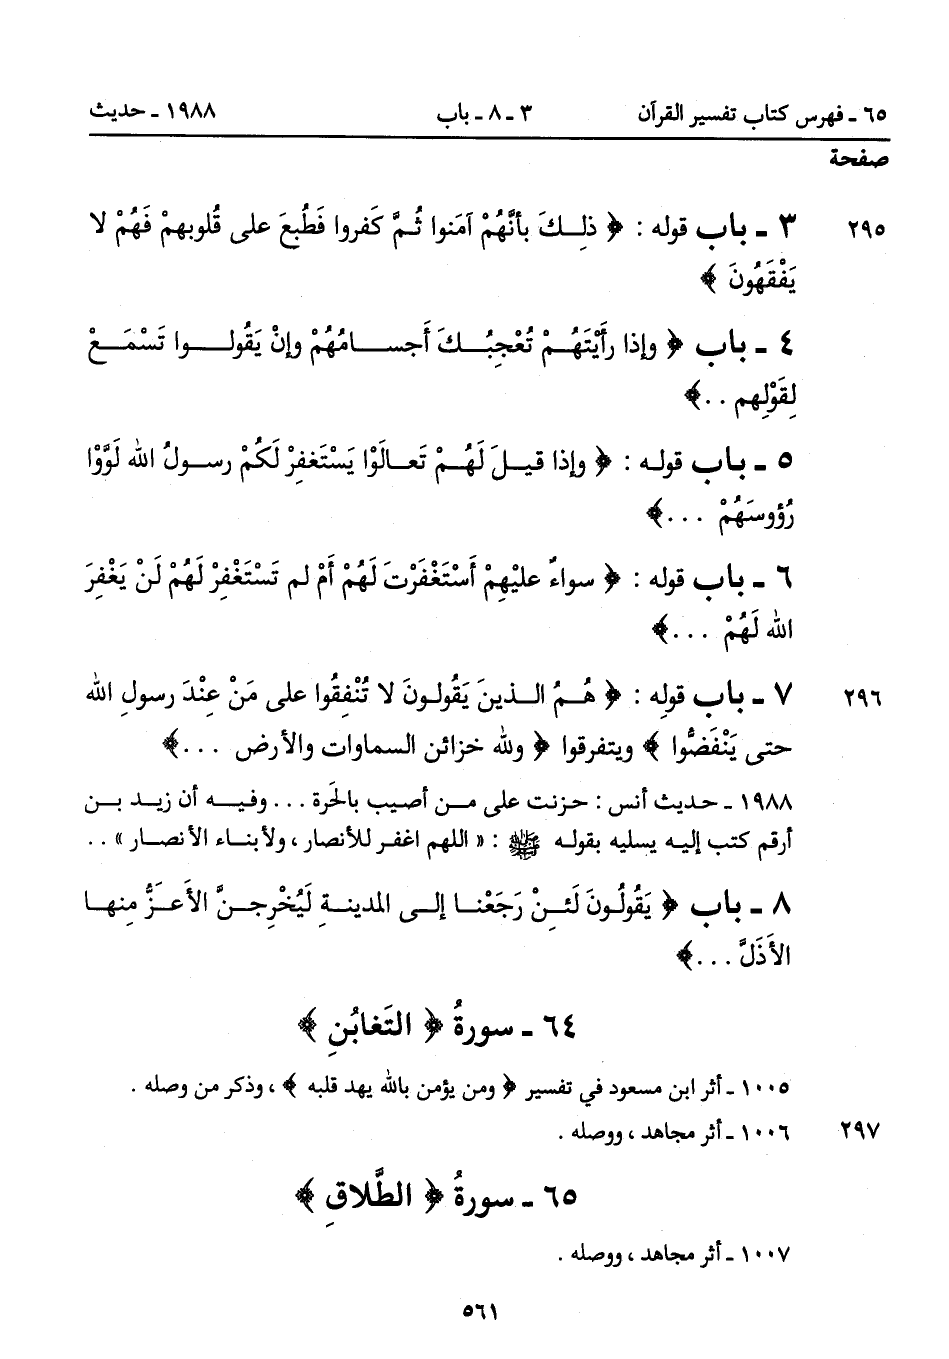 ٦٥ ـ فهرس كتاب تفسير القرآن ٣ ـ ٨ ـ باب ١٩٨٨ ـ حديث
صفحة
٢٩٥ ٣ ـ باب قوله : ﴿ ذلِكَ بأنَّهُمْ آمَنوا ثُمَّ كَفروا فَطُبعَ على قُلوبهمْ فَهُمْ لا
يَفْقَهُونَ ﴾
٤ ـ باب ﴿ وإذا رأَيْتَهُمْ تُعْجِبُكَ أَجسامُهُمْ وإنْ يَقُولوا تَسْمَعْ
لِقَوْلِهم . . ﴾
٥ ـ باب قوله : ﴿ وإذا قيلَ لَهُمْ تَعالَوْا يَسْتَغفِرْ لَكُمْ رسولُ الله لَوَّوْا
رُؤوسَهُمْ . . . ﴾
٦ ـ باب قوله : ﴿ سواءٌ عليْهِمْ أَسْتَغْفَرْتَ لَهُمْ أَمْ لم تَسْتَغْفِرْ لَهُمْ لَنْ يَغْفِرَ
الله لَهُمْ . . . ﴾
٢٩٦ ٧ ـ باب قولِه : ﴿ هُمُ الذينَ يَقُولونَ لا تُنْفِقُوا على مَنْ عِنْدَ رسولِ الله
حتى يَنْفَضُّوا ﴾ ويتفرقوا ﴿ ولله خزائن السماوات والأرض . . . ﴾
١٩٨٨ ـ حديث أنس : حزنت على من أصيب بالحَرة . . . وفيه أن زيد بن
أرقم كتب إليه يسليه بقوله ﷺ : « اللهم اغفر للأنصار ، ولأبناء الأنصار » . .
٨ ـ باب ﴿ يَقُولُونَ لَئِنْ رَجَعْنا إلى المدينةِ لَيُخْرِجنَّ الأَعزُّ مِنها
الأَذَلَّ . . . ﴾
٦٤ ـ سورةُ ﴿ التَغابُنِ ﴾
١٠٠٥ ـ أثر ابن مسعود في تفسير ﴿ ومن يؤمن بالله يهد قلبه ﴾ ، وذكر من وصله .
٢٩٧ ١٠٠٦ ـ أثر مجاهد ، ووصله .
٦٥ ـ سورةُ ﴿ الطَّلاقِ ﴾
١٠٠٧ ـ أثر مجاهد ، ووصله .
٥٦١